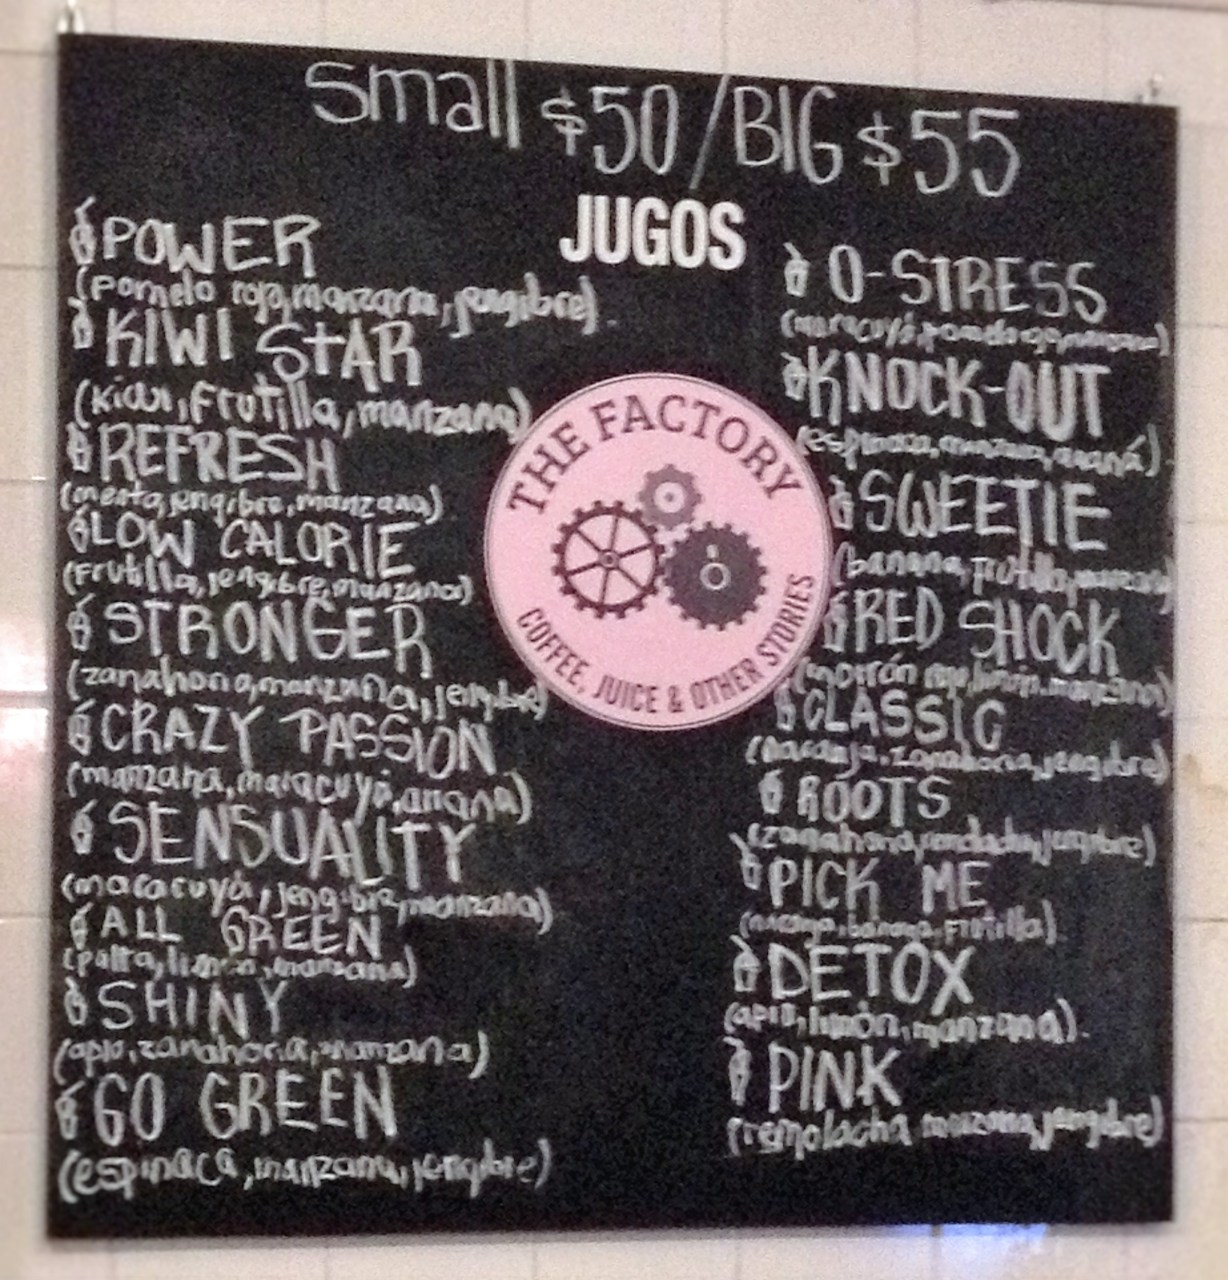 small $50/BIG $55
JUGOS
POWER
(pomelo rojo, manzana, jengibre)
KIWI STAR
(kiwi, frutilla, manzana)
REFRESH
(menta, jengibre, manzana)
LOW CALORIE
(frutilla, jengibre, manzana)
STRONGER
(zanahoria, manzana, jengibre)
CRAZY PASSION
(manzana, maracuyá, anana)
SENSUALITY
(maracuyá, jengibre, manzana)
ALL GREEN
(palta, limón, manzana)
SHINY
(apio, zanahoria, manzana)
GO GREEN
(espinaca, manzana, jengibre)
THE FACTORY
COFFEE, JUICE & OTHER STORIES
O-STRESS
(maracuyá, pomelo rojo, manzana)
KNOCK-OUT
(espinaca, manzana, ananá).
SWEETIE
(banana, frutilla, manzana)
RED SHOCK
(morrón rojo, limón, manzana)
CLASSIC
(naranja, zanahoria, jengibre)
ROOTS
(zanahoria, remolacha, jengibre)
PICK ME
(naranja, banana, frutilla)
DETOX
(apio, limón, manzana).
PINK
(remolacha manzana, jengibre)